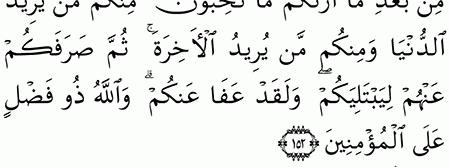 مِّنۢ بَعْدِ مَآ أَرَىٰكُم مَّا تُحِبُّونَ ۚ مِنكُم مَّن يُرِيدُ
ٱلدُّنْيَا وَمِنكُم مَّن يُرِيدُ ٱلْأَخِرَةَ ۚ ثُمَّ صَرَفَكُمْ
عَنْهُمْ لِيَبْتَلِيَكُمْ ۖ وَلَقَدْ عَفَا عَنكُمْ ۗ وَٱللَّهُ ذُو فَضْلٍ
عَلَى ٱلْمُؤْمِنِينَ ﴿١٥٢﴾